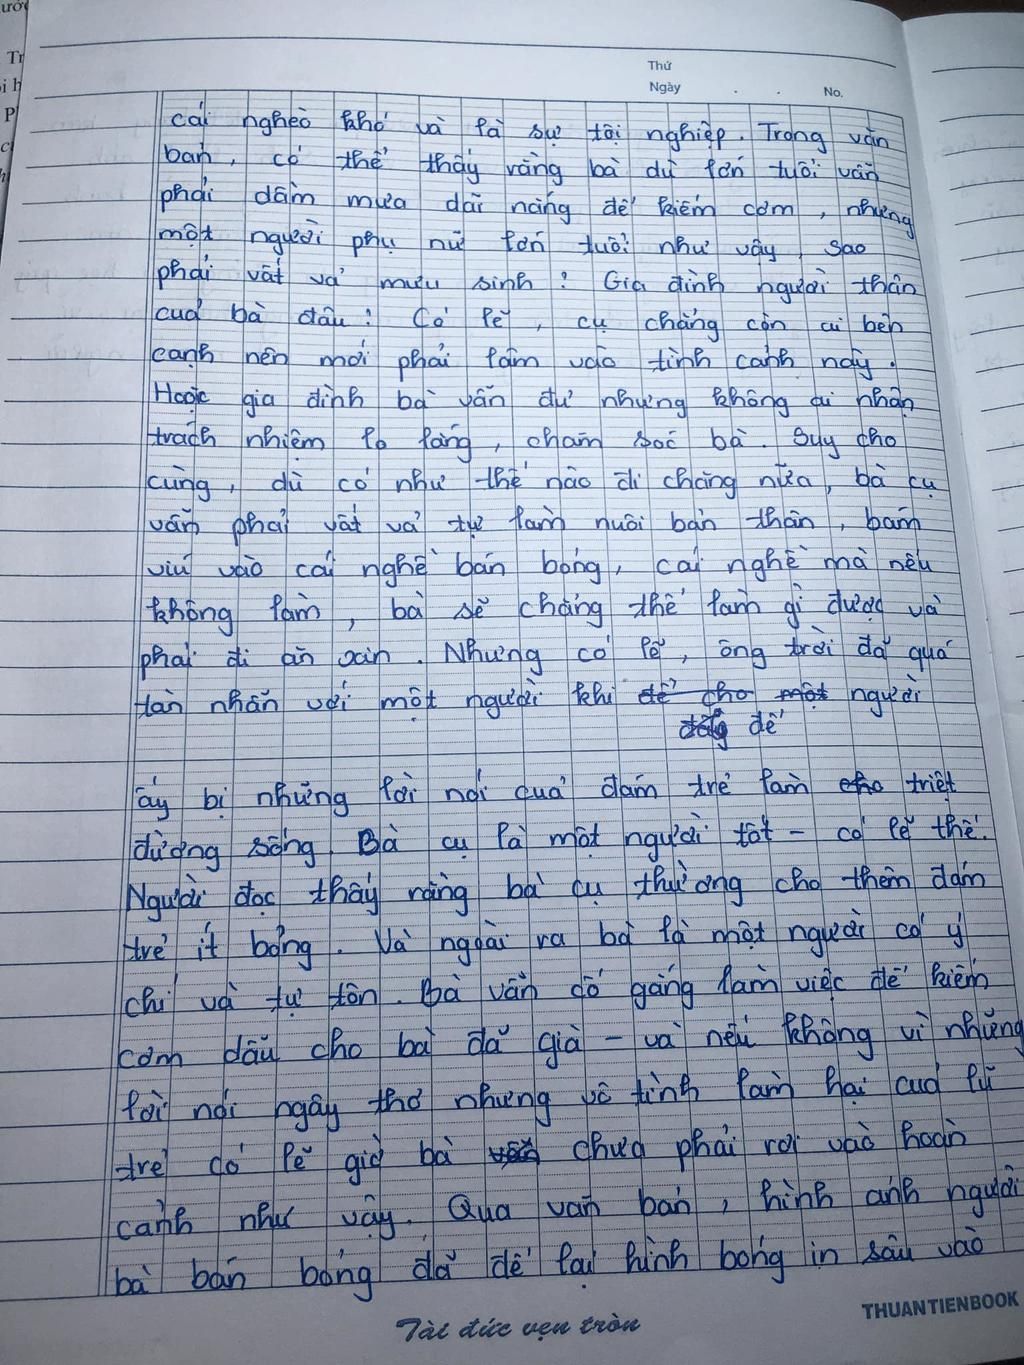 Thứ
Ngày . . No.
cái nghèo khó và là sự tội nghiệp. Trong văn
bản, có thể thấy rằng bà dù lớn tuổi vẫn
phải dầm mưa dãi nắng để kiếm cơm, nhưng
một người phụ nữ lớn tuổi như vậy, sao
phải vất vả mưu sinh? Gia đình người thân
của bà đâu? Có lẽ, cụ chẳng còn ai bên
cạnh nên mới phải lâm vào tình cảnh này.
Hoặc gia đình bà vẫn dư nhưng không ai nhận
trách nhiệm lo lắng, chăm sóc bà. Suy cho
cùng, dù có như thế nào đi chăng nữa, bà cụ
vẫn phải vất vả tự làm nuôi bản thân, bám
víu vào cái nghề bán bỏng, cái nghề mà nếu
không làm, bà sẽ chẳng thể làm gì được và
phải đi ăn xin. Nhưng có lẽ, ông trời đã quá
tàn nhẫn với một người khi để cho một người
để
ấy bị những lời nói của đám trẻ làm cho triệt
đường sống. Bà cụ là một người tốt - có lẽ thế.
Người đọc thấy rằng bà cụ thường cho thêm đám
trẻ ít bỏng. Và ngoài ra bà là một người có ý
chí và tự tôn. Bà vẫn cố gắng làm việc để kiếm
cơm dẫu cho bà đã già - và nếu không vì những
lời nói ngây thơ nhưng vô tình làm hại của lũ
trẻ có lẽ giờ bà chưa phải rơi vào hoàn
cảnh như vậy. Qua văn bản, hình ảnh người
bà bán bỏng đã để lại hình bóng in sâu vào
Tài đức vẹn tròn
THUANTIENBOOK